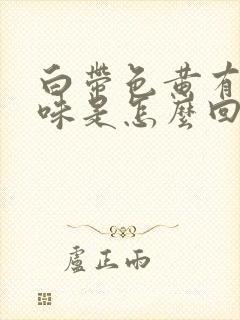 白帶色黃有
味是怎麼回
盧正雨